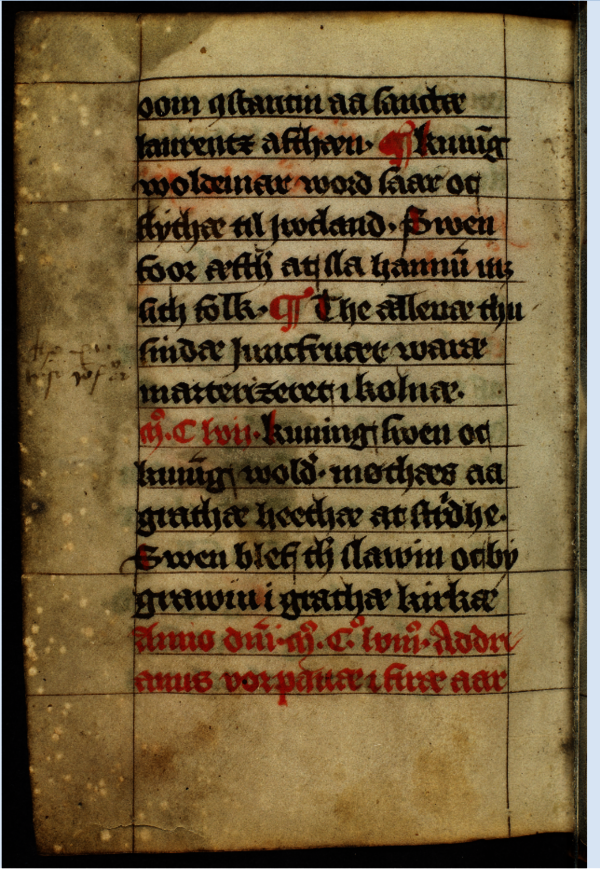 oom qstantin aa sanctæ
laurentz afthæn. ¶ kunu̅g
woldemar word saar oc
flythæ til jwtland. Swen
foor æfth̅ at sla hannu̅ m
sith folk. ¶ The ællenæ thu
sindæ juncfrucer waræ
marterizeret i kolnæ.
M.C lvij. kuning swen oc
kunu̅g wold̅. møthæs aa
grathæ heethæ at strdhe.
Swen blef th̅ slawin oc by
grawin i grathæ kirkæ
Anno dn̅i. M.C. lviij. Addri
anus vor pauæ i firæ aar